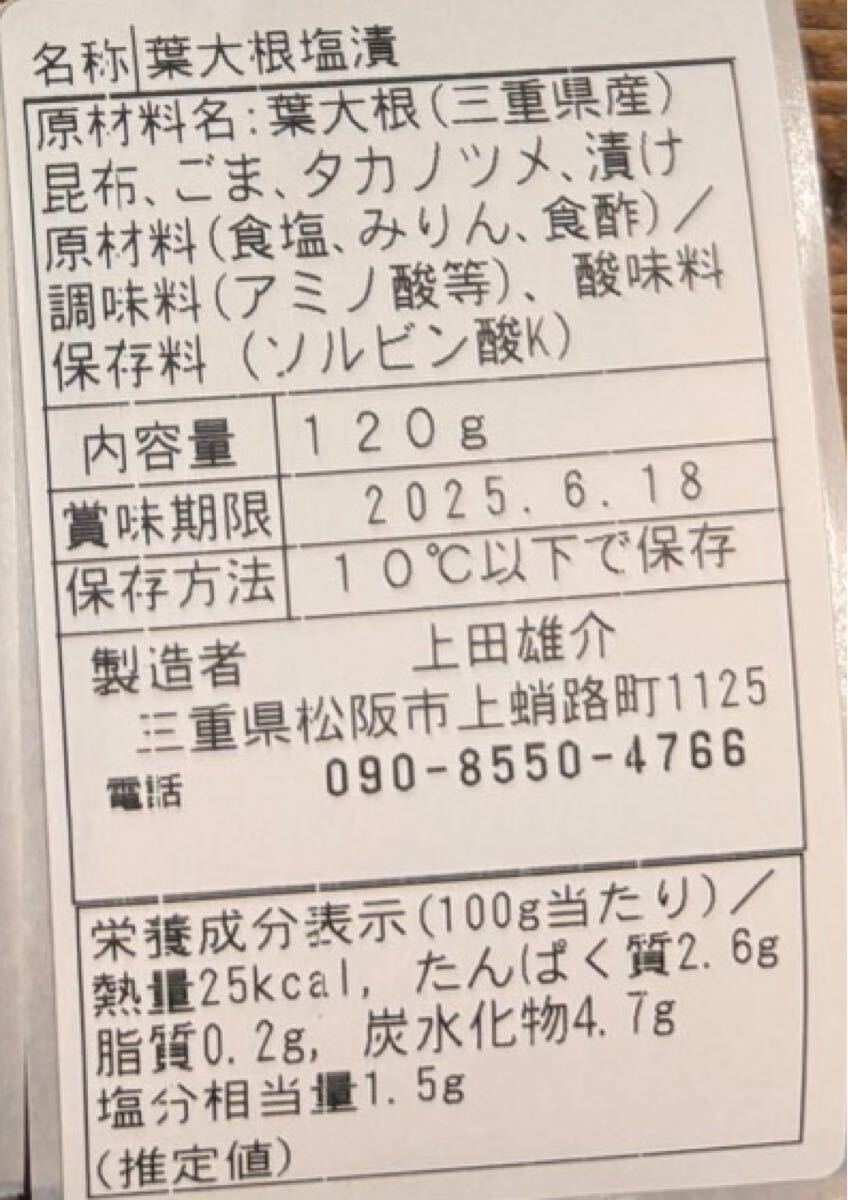 名称 葉大根塩漬
原材料名:葉大根(三重県産)
昆布、ごま、タカノツメ、漬け
原材料(食塩、みりん、食酢)/
調味料(アミノ酸等)、酸味料
保存料(ソルビン酸K)
内容量 120g
賞味期限 2025.6.18
保存方法 10℃以下で保存
製造者 上田雄介
三重県松阪市上蛸路町1125
電話 090-8550-4766
栄養成分表示(100g当たり)/
熱量25kcal, たんぱく質2.6g
脂質0.2g, 炭水化物4.7g
塩分相当量1.5g
(推定値)